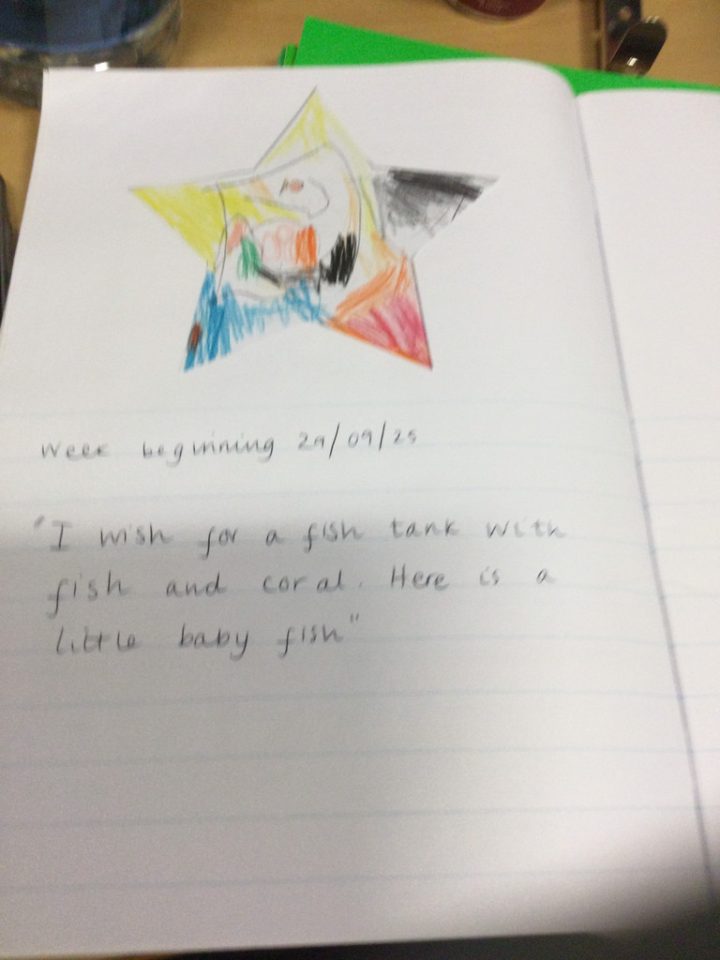 Week beginning 29/09/25
"I wish for a fish tank with
fish and coral. Here is a
little baby fish"